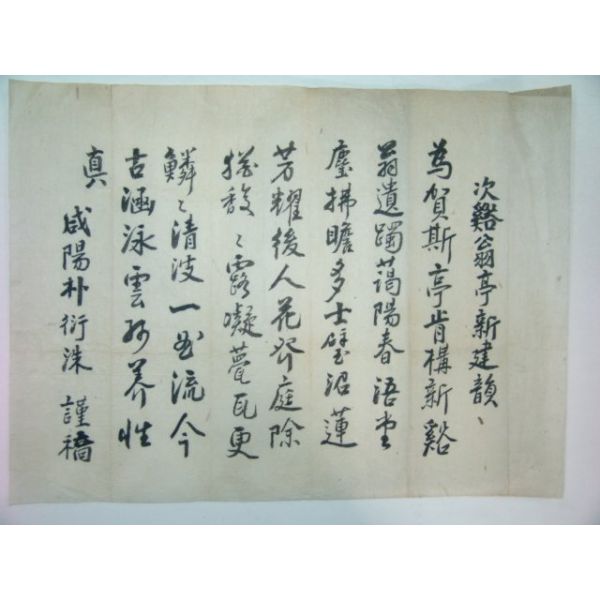 次谿翁亭新建韻
為賀斯亭肯構新谿
翁遺躅藹陽春浯堂
塵拂瞻多士璧沼蓮
芳耀後人花發庭除
猶馥〻露凝甍瓦更
鱗〻清波一曲流今
古涵泳雲孫養性
真 咸陽朴衍洙 謹稿